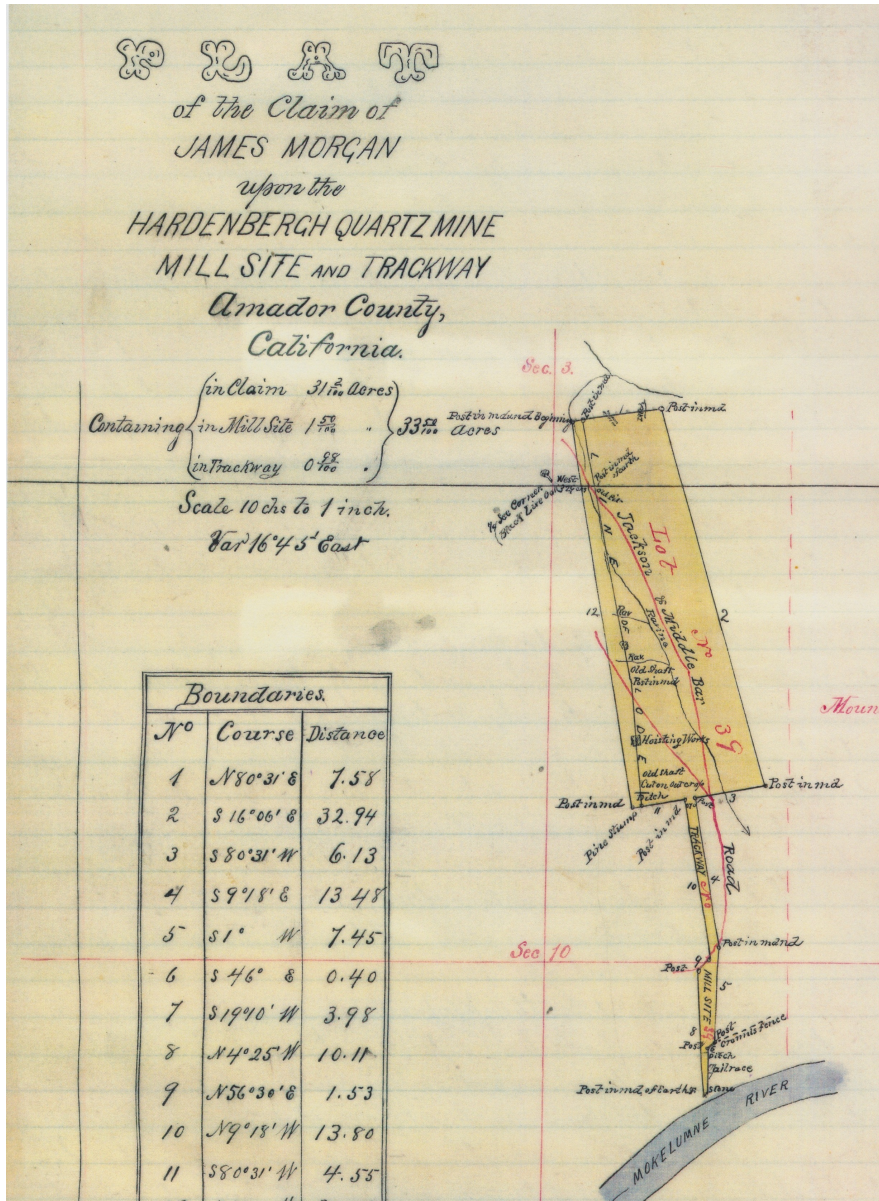 PLAT
of the Claim of
JAMES MORGAN
upon the
HARDENBERGH QUARTZ MINE
MILL SITE AND TRACKWAY
Amador County,
California.
Containing
in Claim 31 2/100 Acres
in Mill Site 1 50/100 "
in Trackway 0 98/100 "
33 50/100 Acres
Scale 10 chs to 1 inch.
Var 16°45' East
Boundaries.
No Course Distance
1 N80°31' E 7.58
2 S16°06' E 32.94
3 S80°31' W 6.13
4 S9°18' E 13 48
5 S1° W 7.45
6 S46° E 0.40
7 S19°10' W 3.98
8 N4°25' W 10.11
9 N56°30' E 1.53
10 N9°18' W 13.80
11 S80°31' W 4.55
Sec. 3.
Post in md and Beginning
Post in md
1
Post in md
West
1/4 Sec Corner
Jackson & Middle Bar
Road
Lot No 39
LINE OF LODE
Ravine
12
2
Old Shaft
Post in md
Hoisting Works
Old Shaft
Ditch
Post in md
Post in md
3
Pine Stump
11
Post in md
Post
TRACKWAY
10
4
Moun
Sec 10
Post in md
9
Post
MILL SITE 39
5
8
Post
Post
Fence
Ditch
Tailrace
Post in md. of Earth &
stone
MOKELUMNE RIVER